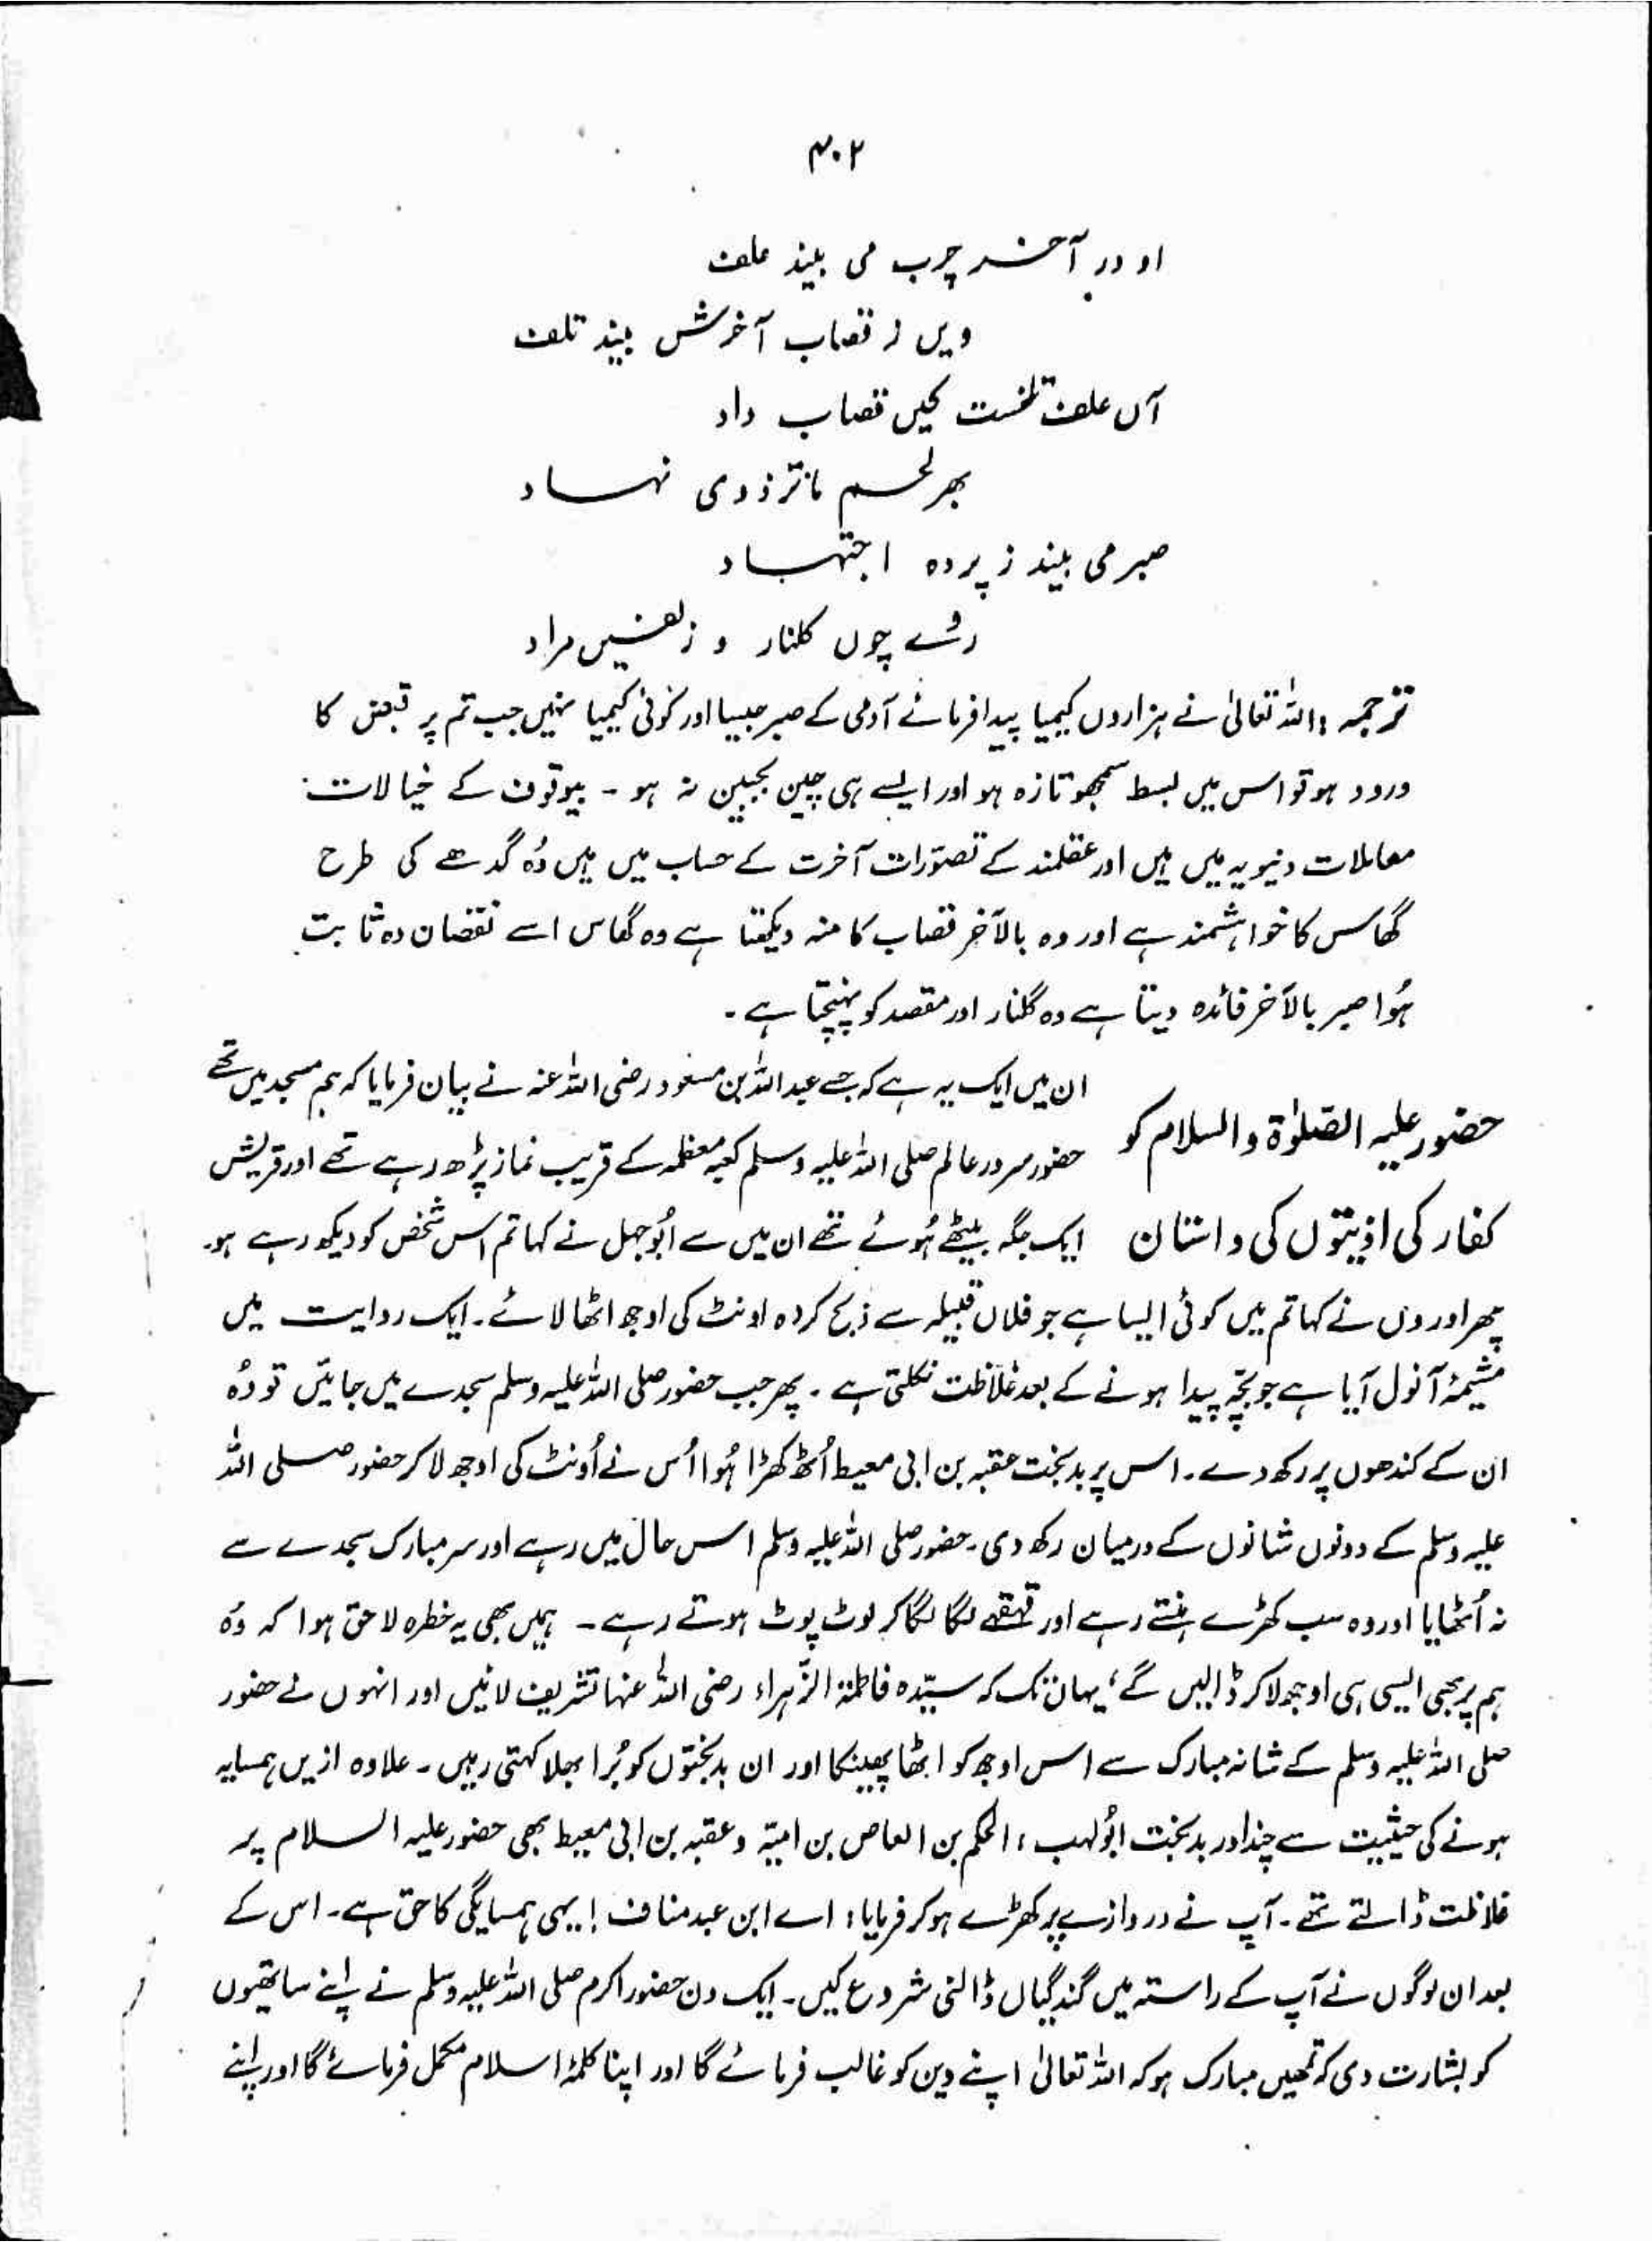 ۴۰۲
او در آخر چرب می بیند علف
ویں ز قصاب آخرش بیند تلف
آں علف تلخست کیں قصاب داد
بہر لحم ما ترازوی نہاد
صبر می بیند ز پردہ اجتہاد
روئے چوں گلنار و زلفیں مراد
ترجمہ: اللہ تعالیٰ نے ہزاروں کیمیا پیدا فرمائے آدمی کے صبر جیسا اور کوئی کیمیا نہیں جب تم پر قبض کا
ورود ہو تو اس میں بسط سمجھو تازہ ہو اور ایسے ہی چیں بجبیں نہ ہو - بیوقوف کے خیالات
معاملات دنیویہ میں ہیں اور عقلمند کے تصوّرات آخرت کے حساب میں ہیں وُہ گدھے کی طرح
گھاس کا خواہشمند ہے اور وہ بالآخر قصاب کا منہ دیکھتا ہے وہ گھاس اسے نقصان دہ ثابت
ہُوا صبر بالآخر فائدہ دیتا ہے وہ گلنار اور مقصد کو پہنچتا ہے ۔
حضور علیہ الصلوٰۃ والسلام کو
کفار کی اذیتوں کی داستان
ان میں ایک یہ ہے کہ جسے عبداللہ بن مسعود رضی اللہ عنہ نے بیان فرمایا کہ ہم مسجد میں تھے
حضور سرور عالم صلی اللہ علیہ وسلم کعبہ معظمہ کے قریب نماز پڑھ رہے تھے اور قریش
ایک جگہ بیٹھے ہُوئے تھے ان میں سے ابُوجہل نے کہا تم اس شخص کو دیکھ رہے ہو۔
پھر اوروں نے کہا تم میں کوئی ایسا ہے جو فلاں قبیلہ سے ذبح کردہ اونٹ کی اوجھ اٹھا لائے۔ ایک روایت میں
مشیمۂ آنول آیا ہے جو بچّہ پیدا ہونے کے بعد غلاظت نکلتی ہے ۔ پھر جب حضور صلی اللہ علیہ وسلم سجدے میں جائیں تو وُہ
ان کے کندھوں پر رکھ دے۔ اس پر بدبخت عقبہ بن ابی معیط اُٹھ کھڑا ہُوا اُس نے اُونٹ کی اوجھ لا کر حضور صلی اللہ
علیہ وسلم کے دونوں شانوں کے درمیان رکھ دی۔ حضور صلی اللہ علیہ وسلم اس حال میں رہے اور سر مبارک سجدے سے
نہ اُٹھایا اور وہ سب کھڑے ہنستے رہے اور قہقہے لگا لگا کر لوٹ پوٹ ہوتے رہے - ہمیں بھی یہ خطرہ لاحق ہوا کہ وُہ
ہم پر بھی ایسی ہی اوجھ لا کر ڈالیں گے، یہاں تک کہ سیّدہ فاطمۃ الزّہراء رضی اللہ عنہا تشریف لائیں اور انہوں نے حضور
صلی اللہ علیہ وسلم کے شانہ مبارک سے اس اوجھ کو اٹھا پھینکا اور ان بدبختوں کو بُرا بھلا کہتی رہیں ۔ علاوہ ازیں ہمسایہ
ہونے کی حیثیت سے چند اور بدبخت ابُولہب ، الحکم بن العاص بن امیّہ و عقبہ بن ابی معیط بھی حضور علیہ السلام پر
غلاظت ڈالتے تھے۔ آپ نے دروازے پر کھڑے ہو کر فرمایا : اے ابن عبد مناف ! یہی ہمسایگی کا حق ہے۔ اس کے
بعد ان لوگوں نے آپ کے راستہ میں گندگیاں ڈالنی شروع کیں۔ ایک دن حضور اکرم صلی اللہ علیہ وسلم نے اپنے ساتھیوں
کو بشارت دی کہ تمھیں مبارک ہو کہ اللہ تعالیٰ اپنے دین کو غالب فرمائے گا اور اپنا کلمۂ اسلام مکمل فرمائے گا اور اپنے